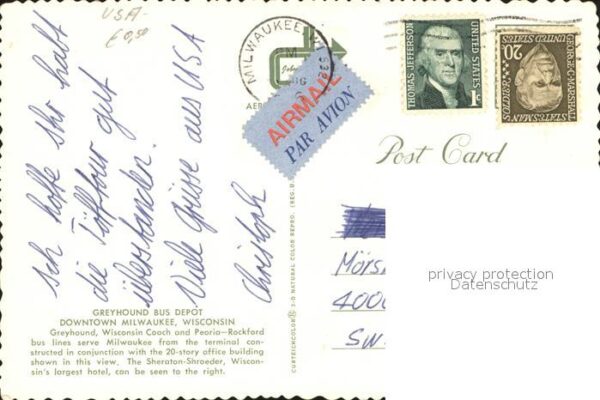 USA-
€0,50
Ich hoffe Ihr habt
die Töfftour gut
überstanden.
Viele Grüsse aus USA
Christoph
GREYHOUND BUS DEPOT
DOWNTOWN MILWAUKEE, WISCONSIN
Greyhound, Wisconsin Coach and Peoria—Rockford
bus lines serve Milwaukee from the terminal con-
structed in conjunction with the 20-story office building
shown in this view. The Sheraton-Schroeder, Wiscon-
sin's largest hotel, can be seen to the right.
MILWAUKEE, WI
PM
AIRMAIL
PAR AVION
THOMAS JEFFERSON
UNITED STATES
1c
GEORGE C. MARSHALL
STATESMAN
SOLDIER
UNITED STATES
20c
Post Card
CURTEICHCOLOR® 3-D NATURAL COLOR REPRO. (REG. U.
Mörs
4000
Sw
privacy protection
Datenschutz